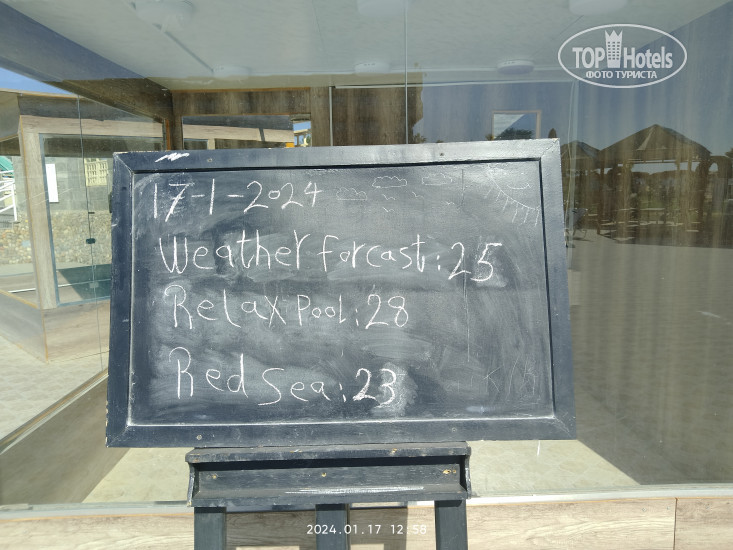 TOP Hotels
ФОТО ТУРИСТА
17-1-2024
Weather forcast: 25
Relax Pool: 28
Red Sea: 23
2024.01.17 12:58